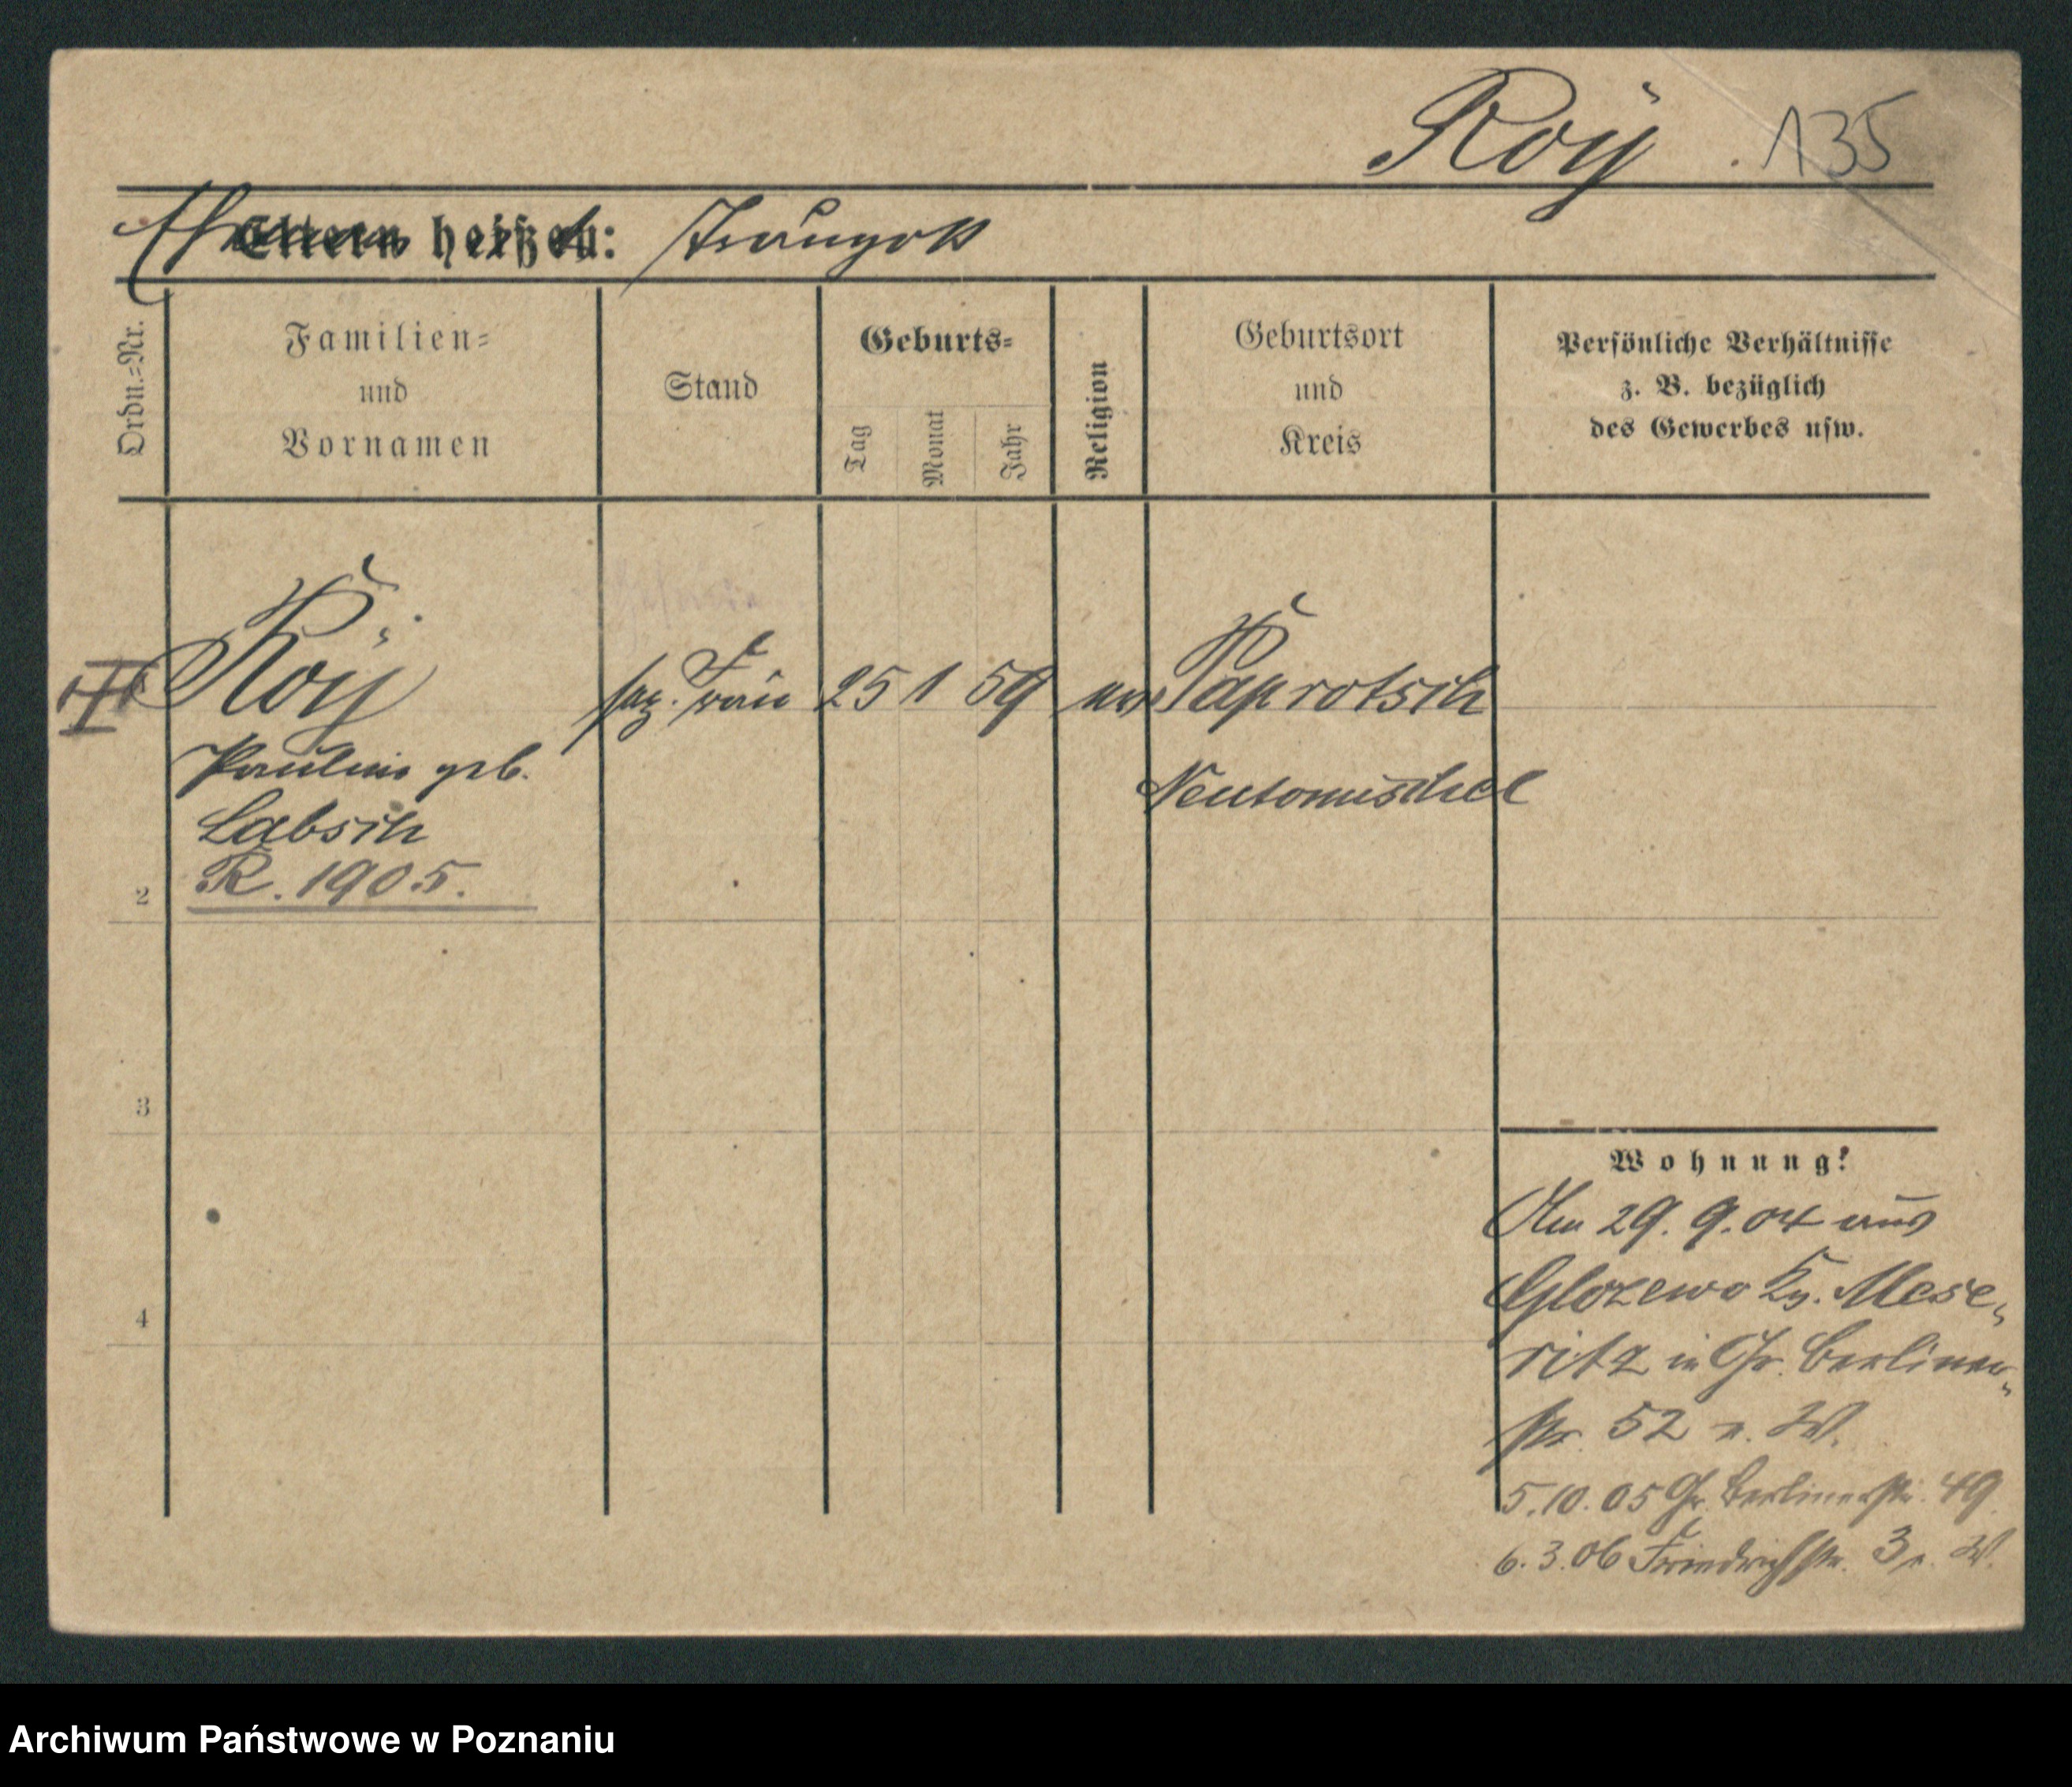 Roÿ . 135
Ehemann heißt: Traugott
Ordn.=Nr.
Familien=
und
Vornamen
Stand
Geburts=
Tag
Monat
Jahr
Religion
Geburtsort
und
Kreis
Persönliche Verhältnisse
z. B. bezüglich
des Gewerbes usw.
Roÿ Frau 25 1 59 Paprotsch
Pauline geb. Neutomischel
Labsch
2 R. 1905.
3
4
Wohnung:
Am 29. 9. 04 aus
Glozewo Kr. Mese-
ritz in Gr. Berliner-
str. 52 n. W.
5.10.05 Gr. Berlinerstr. 49
6.3.06 Friedrichstr. 3 n. W.
Archiwum Państwowe w Poznaniu